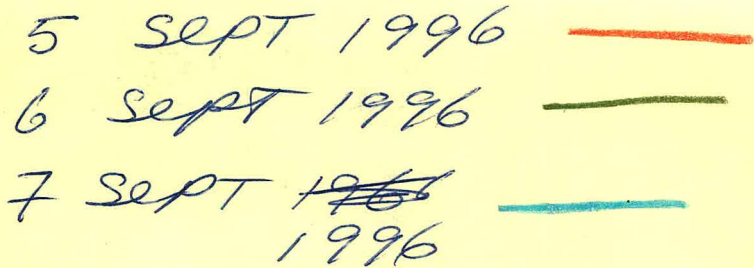 5 SEPT 1996
6 SEPT 1996
7 SEPT
1996